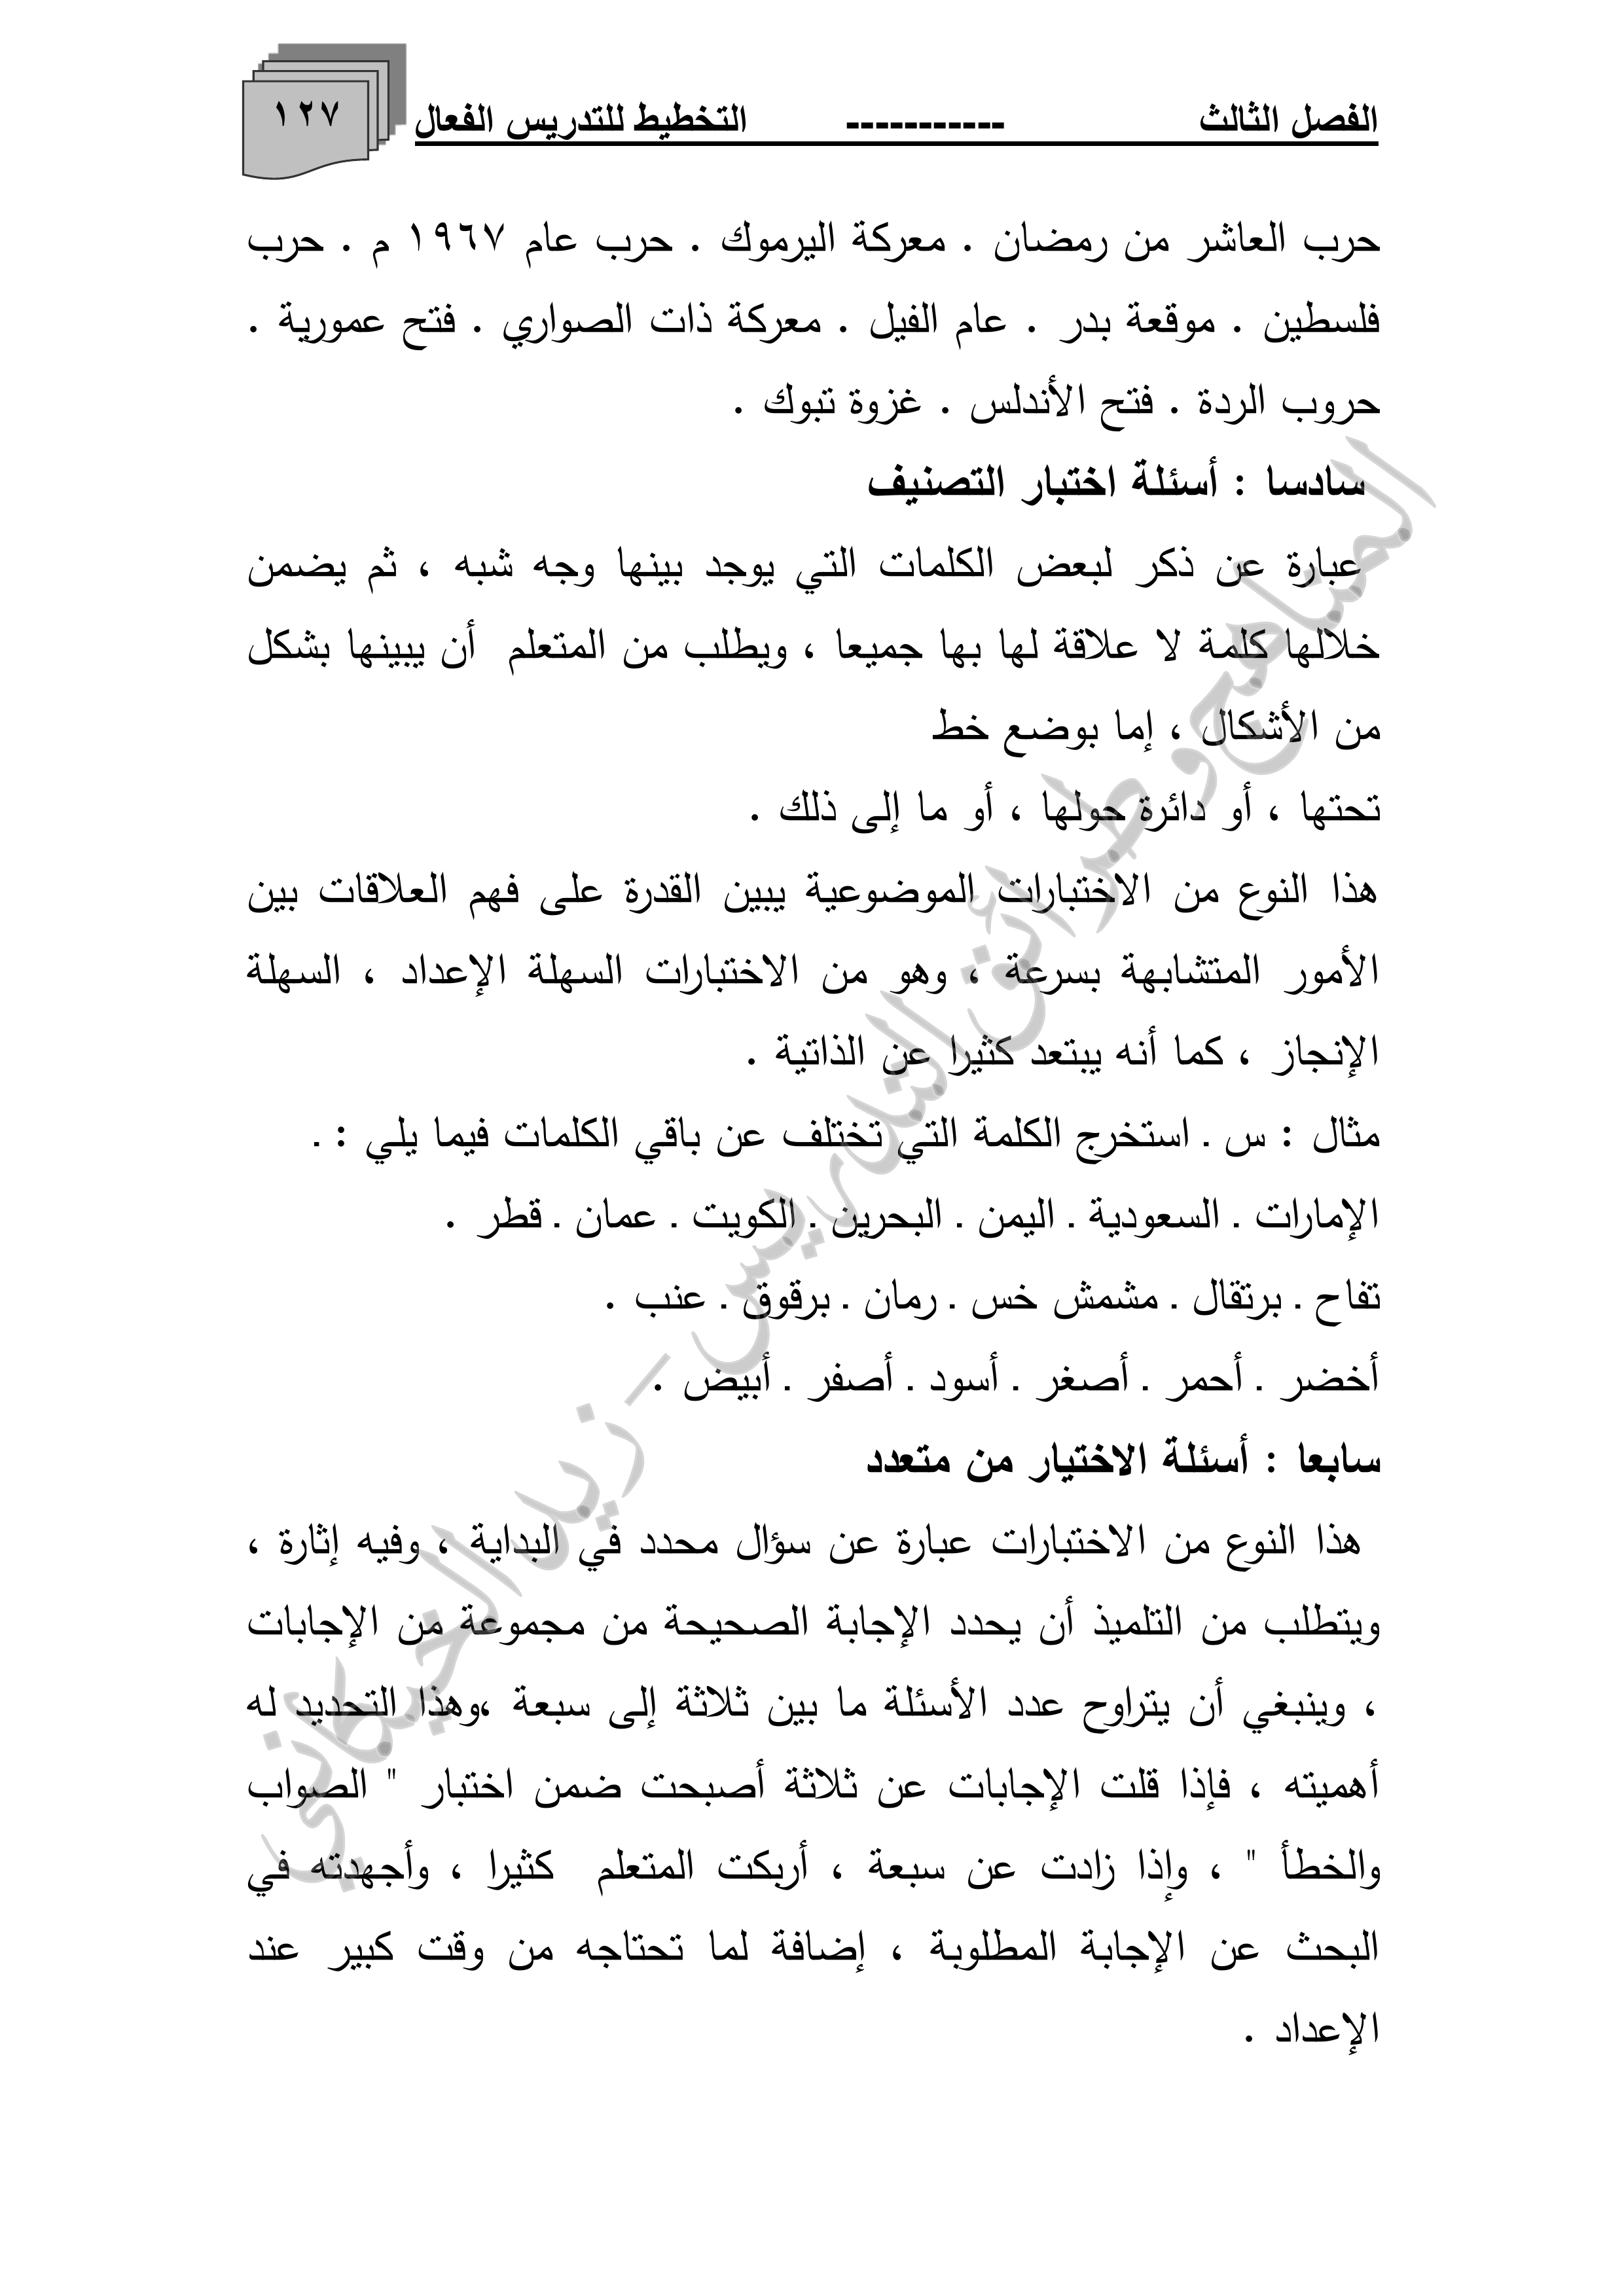 الفصل الثالث ----------- التخطيط للتدريس الفعال ١٢٧
حرب العاشر من رمضان . معركة اليرموك . حرب عام ١٩٦٧ م . حرب
فلسطين . موقعة بدر . عام الفيل . معركة ذات الصواري . فتح عمورية .
حروب الردة . فتح الأندلس . غزوة تبوك .
سادسا : أسئلة اختبار التصنيف
عبارة عن ذكر لبعض الكلمات التي يوجد بينها وجه شبه ، ثم يضمن
خلالها كلمة لا علاقة لها بها جميعا ، ويطلب من المتعلم أن يبينها بشكل
من الأشكال ، إما بوضع خط
تحتها ، أو دائرة حولها ، أو ما إلى ذلك .
هذا النوع من الاختبارات الموضوعية يبين القدرة على فهم العلاقات بين
الأمور المتشابهة بسرعة ، وهو من الاختبارات السهلة الإعداد ، السهلة
الإنجاز ، كما أنه يبتعد كثيرا عن الذاتية .
مثال : س ـ استخرج الكلمة التي تختلف عن باقي الكلمات فيما يلي : ـ
الإمارات ـ السعودية ـ اليمن ـ البحرين ـ الكويت ـ عمان ـ قطر .
تفاح ـ برتقال ـ مشمش خس ـ رمان ـ برقوق ـ عنب .
أخضر ـ أحمر ـ أصغر ـ أسود ـ أصفر ـ أبيض .
سابعا : أسئلة الاختيار من متعدد
هذا النوع من الاختبارات عبارة عن سؤال محدد في البداية ، وفيه إثارة ،
ويتطلب من التلميذ أن يحدد الإجابة الصحيحة من مجموعة من الإجابات
، وينبغي أن يتراوح عدد الأسئلة ما بين ثلاثة إلى سبعة ،وهذا التحديد له
أهميته ، فإذا قلت الإجابات عن ثلاثة أصبحت ضمن اختبار " الصواب
والخطأ " ، وإذا زادت عن سبعة ، أربكت المتعلم كثيرا ، وأجهدته في
البحث عن الإجابة المطلوبة ، إضافة لما تحتاجه من وقت كبير عند
الإعداد .
المناهج وطرائق التدريس – زيد الخيكاني